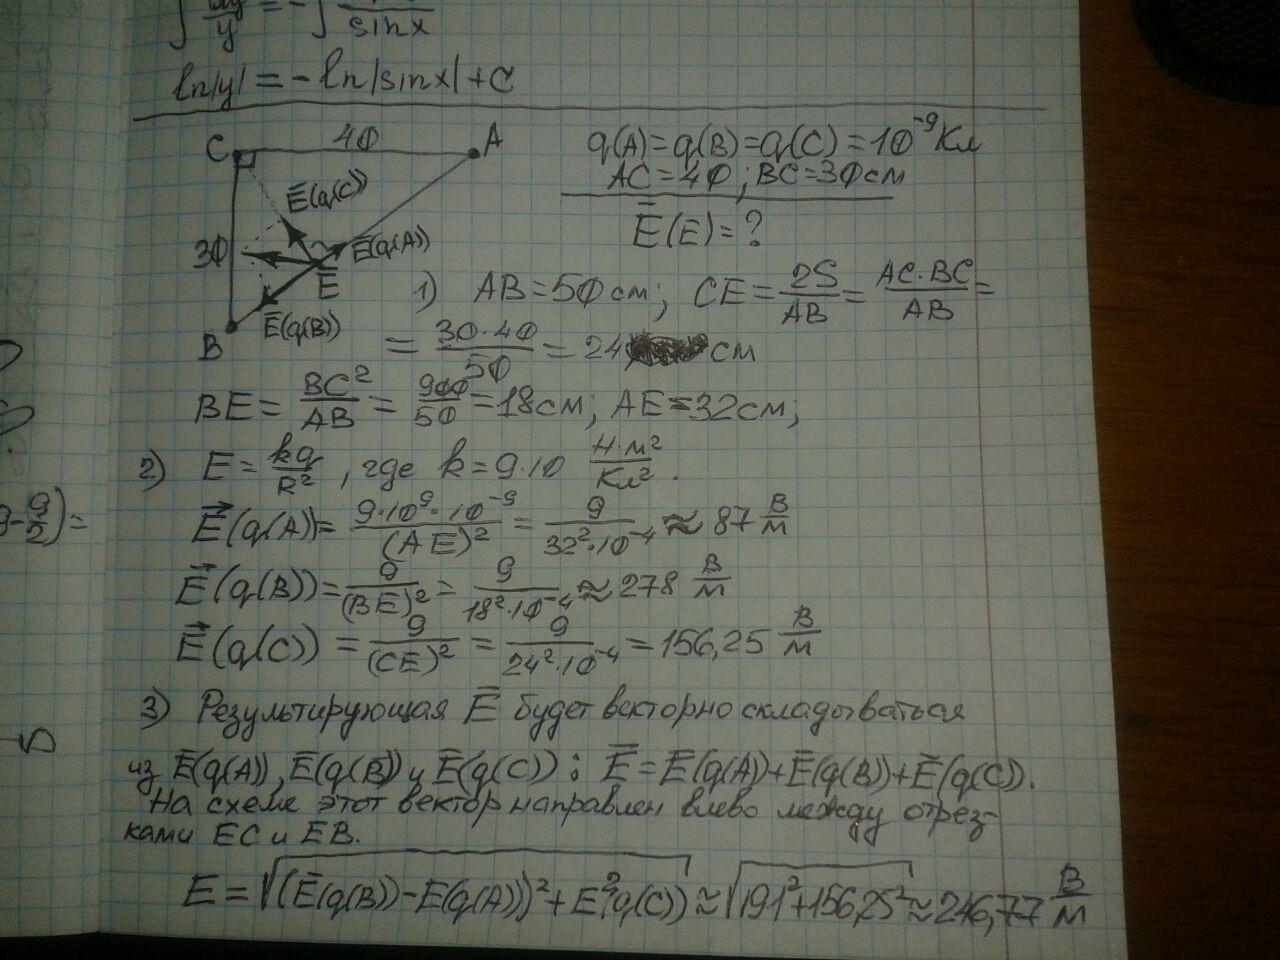 ln|y| = - ln|sinx| + C
C 40 A
q(A) = q(B) = q(C) = 10⁻⁹ Кл
AC = 40 ; BC = 30 см
E̅(E) = ?
E̅(q(C))
30 E̅(q(A))
E
E̅(q(B))
B
1) AB = 50 см; CE = 2S/AB = AC·BC/AB =
= 30·40/50 = 24 см
BE = BC²/AB = 900/50 = 18 см; AE = 32 см;
2) E = kq/R², где k = 9·10 Н·м²/Кл².
E⃗(q(A)) = 9·10⁹·10⁻⁹/(AE)² = 9/32²·10⁻⁴ ≈ 87 В/м
E⃗(q(B)) = 9/(BE)² = 9/18²·10⁻⁴ ≈ 278 В/м
E⃗(q(C)) = 9/(CE)² = 9/24²·10⁻⁴ = 156,25 В/м
3) Результирующая E̅ будет векторно складываться
из E̅(q(A)), E̅(q(B)) и E̅(q(C)): E̅ = E̅(q(A)) + E̅(q(B)) + E̅(q(C)).
На схеме этот вектор направлен влево между отрез-
ками EC и EB.
E = √((E̅(q(B)) - E(q(A)))² + E²(q(C))) ≈ √(191² + 156,25²) ≈ 246,77 В/м